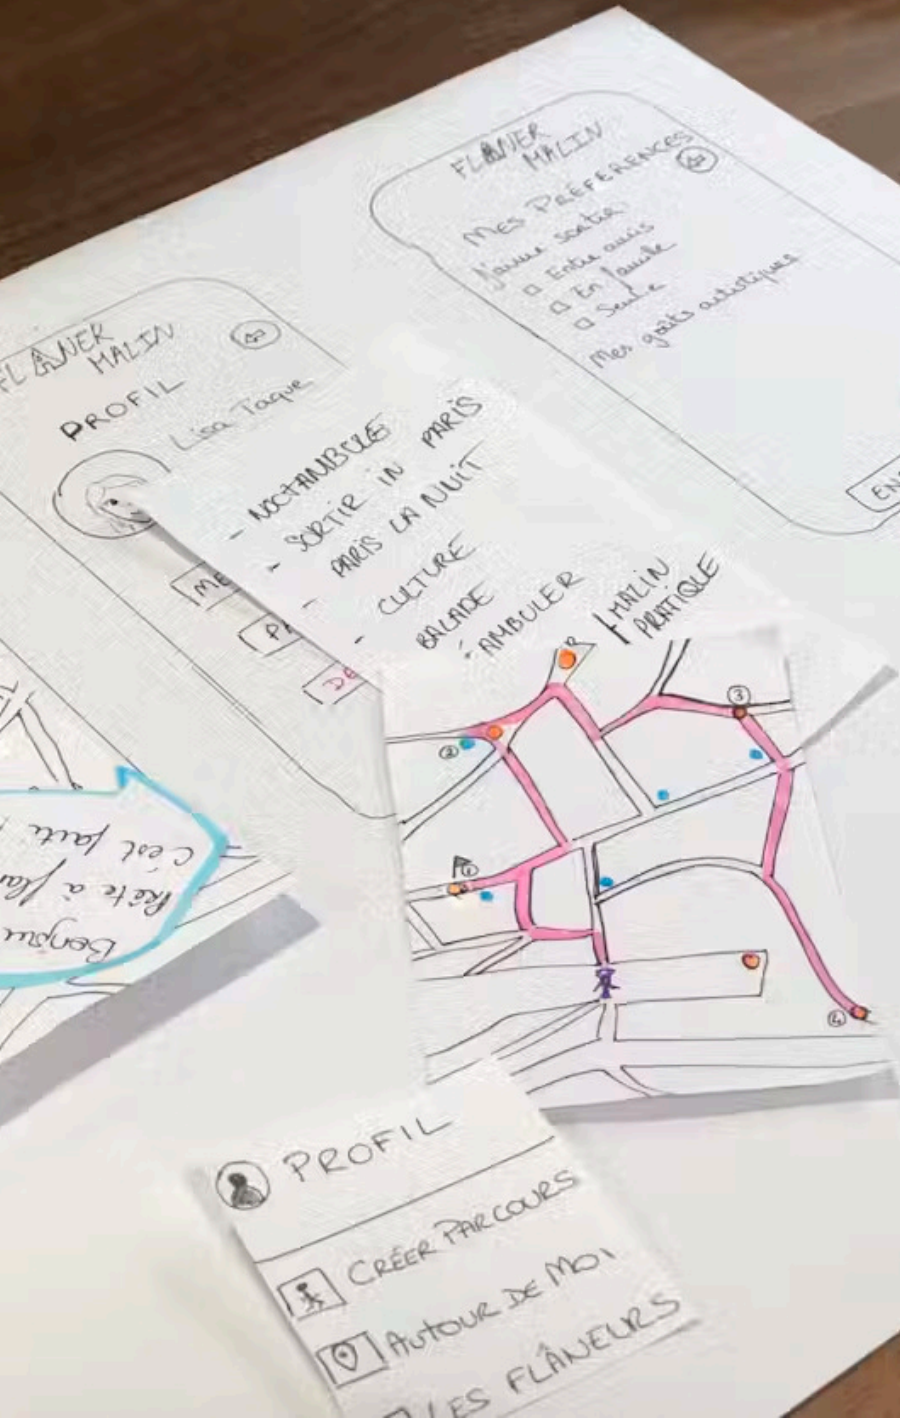 FLÂNER
MALIN
MES PRÉFÉRENCES
J'aime sortir
Entre amis
En famille
Seule
Mes goûts artistiques
EN
FLÂNER
MALIN
PROFIL
Lisa Taque
ME
PA
DE
- NOCTAMBULE
- SORTIR IN PARIS
- PARIS LA NUIT
- CULTURE
BALADE
AMBULER
MALIN
PRATIQUE
②
③
①
④
Bonjou
Prête à flan
C'est parti !
PROFIL
CRÉER PARCOURS
AUTOUR DE MOI
LES FLÂNEURS